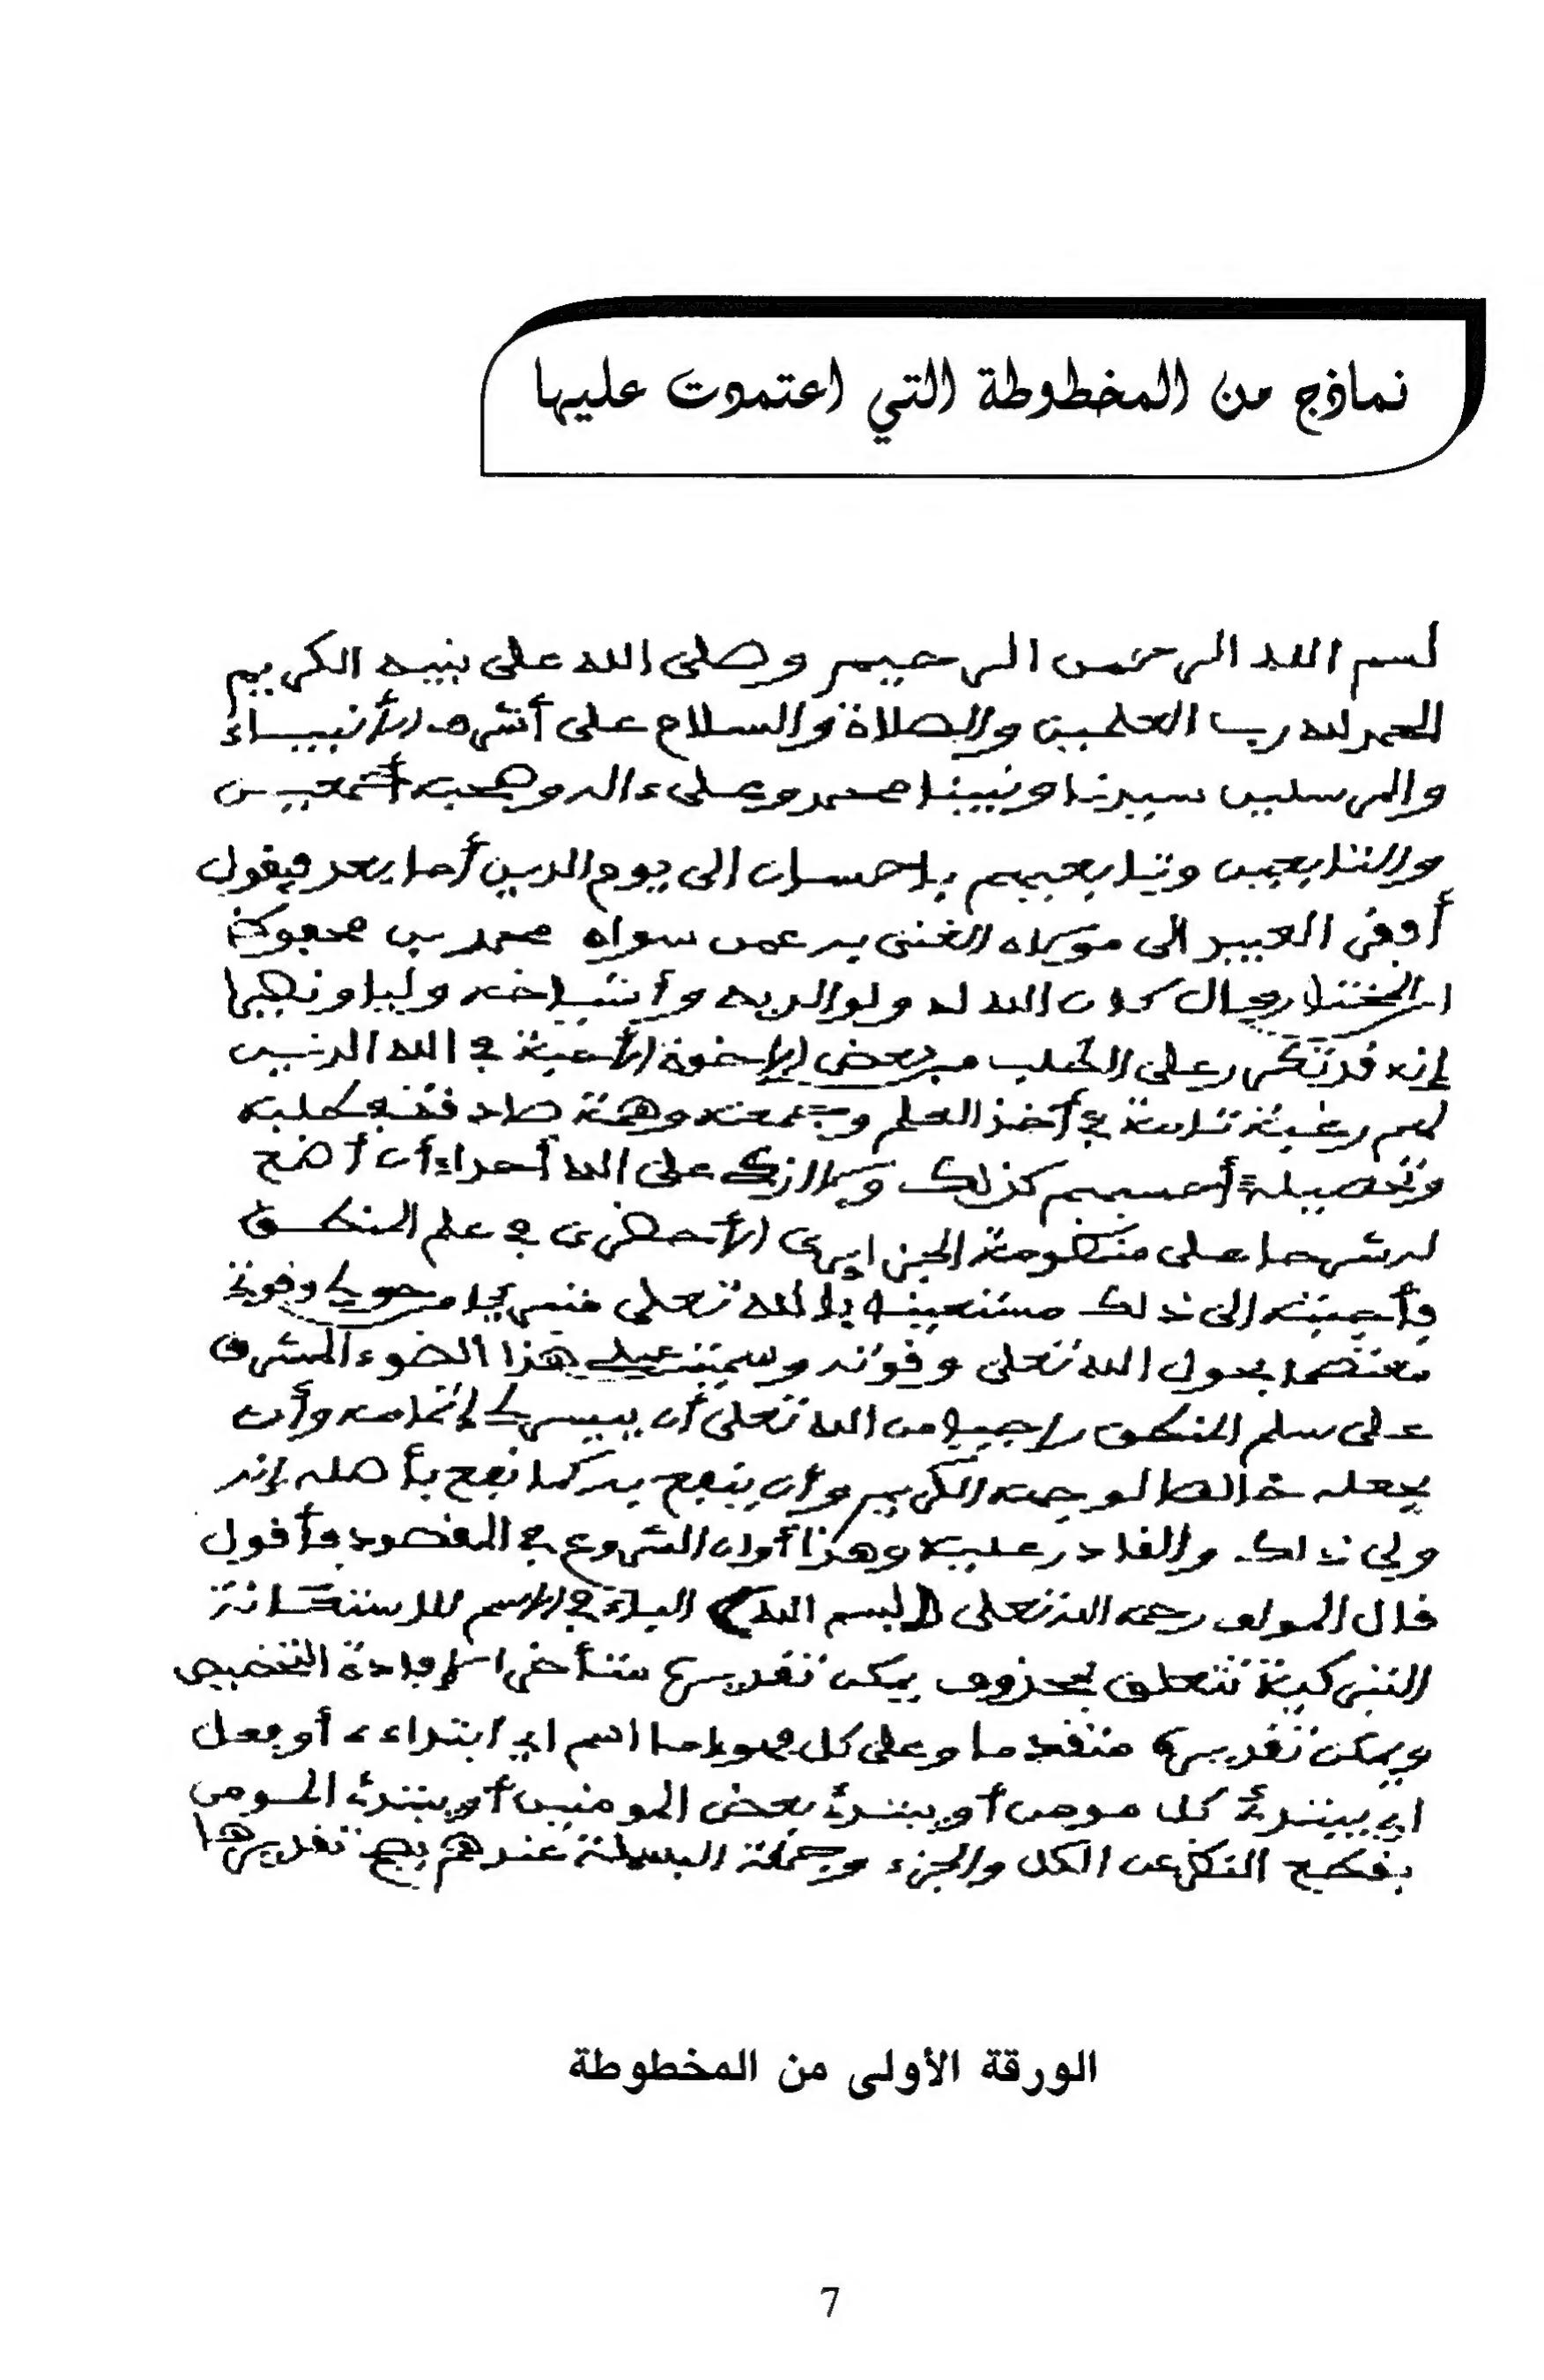 نماذج من المخطوطة التي اعتمدت عليها
بسم الله الرحمن الرحيم وصلى الله على نبيه الكريم
الحمد لله رب العلمين والصلاة والسلام على أشرف الأنبياء
والمرسلين سيدنا ونبينا محمد وعلى ءاله وصحبه أجمعين
والتابعين وتابعيهم بإحسان إلى يوم الدين أما بعد فيقول
أفقر العبيد إلى مولاه الغني به عمن سواه محمد بن محفوظ
ابن المختار فال كان الله له ولوالديه وأشياخه وليا ونصيرا
إنه قد تكرر علي الطلب من بعض الإخوة الأحبة في الله الذين
لهم رغبة تامة في أخذ العلم وجمعه وهمة صادقة في طلبه
وتحصيله أحسبهم كذلك ولا أزكي على الله أحدا أن أضع
لهم شرحا على منظومة الجزايري الأخضري في علم المنطق
فأجبته إلى ذلك مستعينا بالله تعلى متبريا من حولي وقوتي
معتصما بحول الله تعلى وقوته وسميته هذا الضوء المشرق
على سلم المنطق راجيا من الله تعلى أن ييسر لي إتمامه وأن
يجعله خالصا لوجهه الكريم وأن ينفع به كما نفع بأصله إنه
ولي ذلك والقادر عليه وهذا أوان الشروع في المقصود فأقول
قال المولف رحمه الله تعلى (بسم الله) الباء في الاسم للاستعانة
التبركية تتعلق بمحذوف يمكن تقديره متأخرا لإفادة التخصيص
ويمكن تقديره متقدما وعلى كل فهو إما اسم اي ابتداءي أو فعل
اي يبتدئ كل مومن أو يبتدئ بعض المومنين أو يبتدئ المومن
بقطع النظر عن الكل والجزء وجملة البسملة عندهم يصح تقديرها
الورقة الأولى من المخطوطة
7